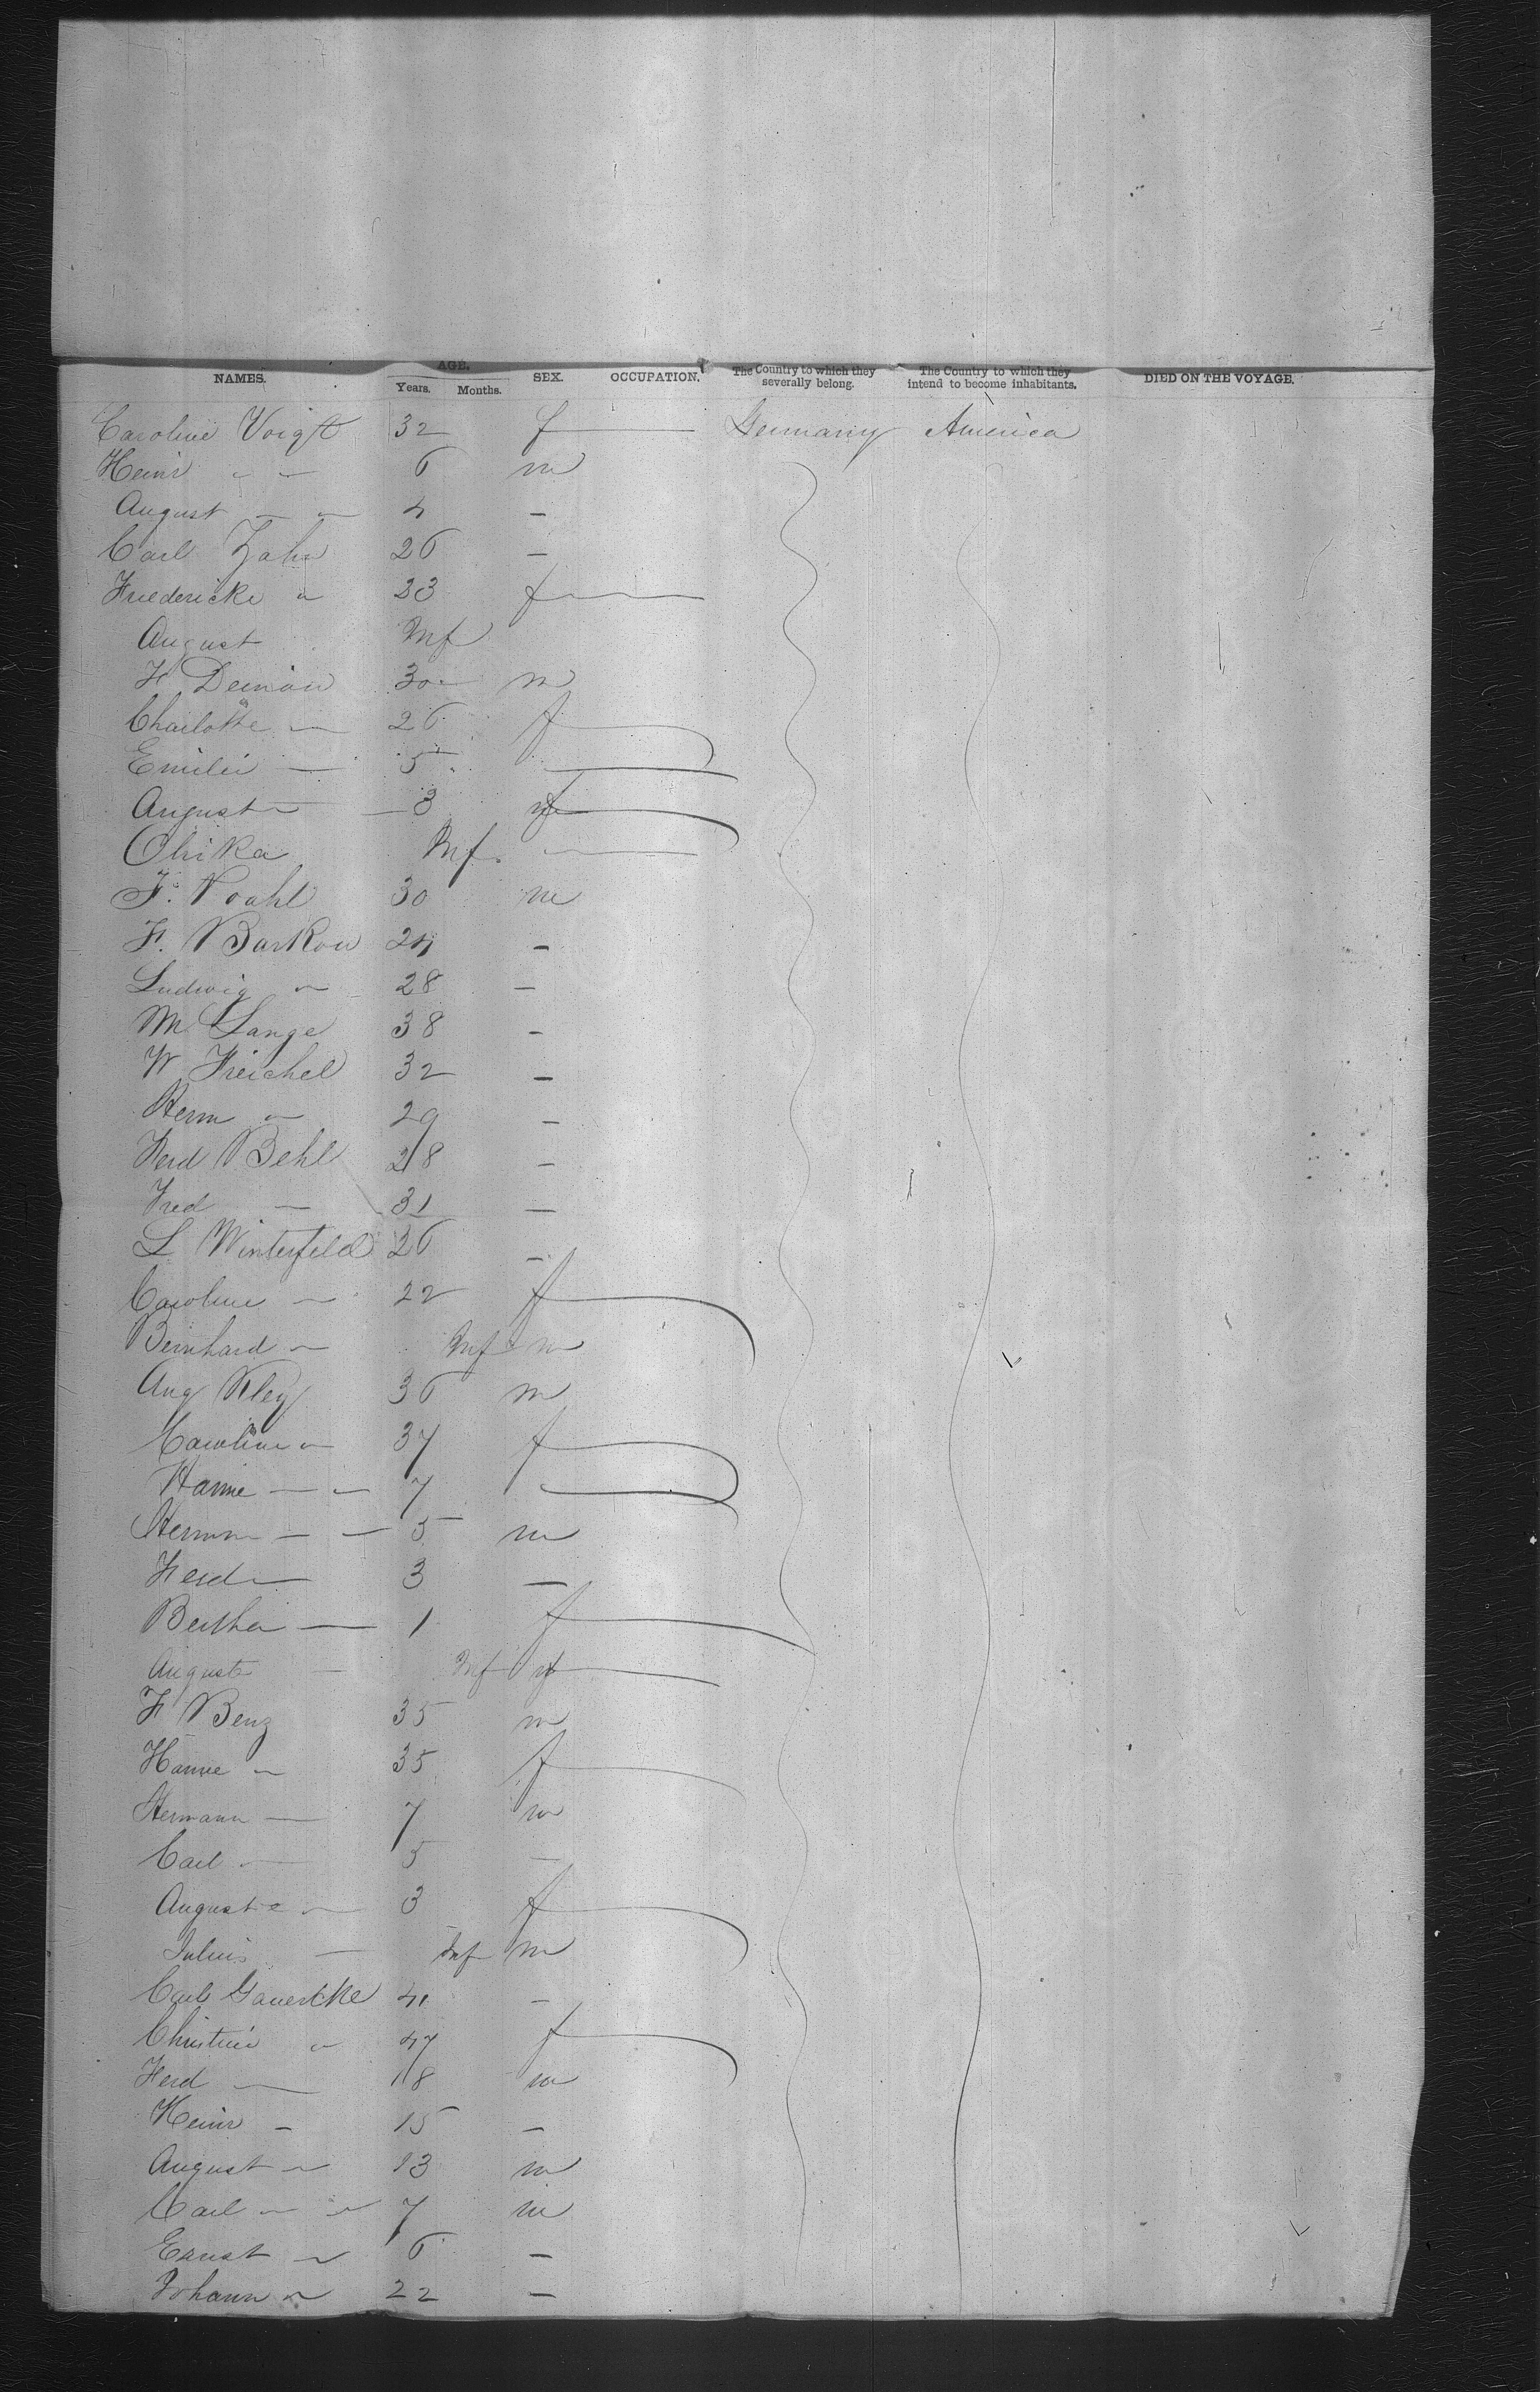 NAMES. AGE. Years. Months. SEX. OCCUPATION. The Country to which they severally belong. The Country to which they intend to become inhabitants. DIED ON THE VOYAGE.
Caroline Voigt 32 f — Germany America
Heinr " " 6 m
August — " 4 —
Carl Zahn 26 —
Friedericke " 23 f
August Inf
F 30 m
Charlotte — 26 f
Emilie — 5
August — 3 f
Inf. —
F. 30 m
F. Barkow 24 —
Ludwig " 28 —
M Lange 38 —
W 32 —
Herm " 29 —
Ferd Behl 28 —
Fred — 31 —
L Winterfeld 26 —
Caroline — 22 f
Bernhard — Inf m
Aug Kley 36 m
Caroline " 37 f
Hanne — " 7
Hermn — — 5 m
Ferd — 3 —
Bertha — 1 f
Auguste — Inf f
F Benz 35 m
Hanne " 35 f
Hermann — 7 m
Carl — 5 —
Auguste — 3 f
Julius — Inf m
Carl 41 —
Christine " 47 f
Ferd — 18 m
Heinr — 15 —
August — 13 m
Carl — " 7 m
Ernst — 6 —
Johann " 22 —